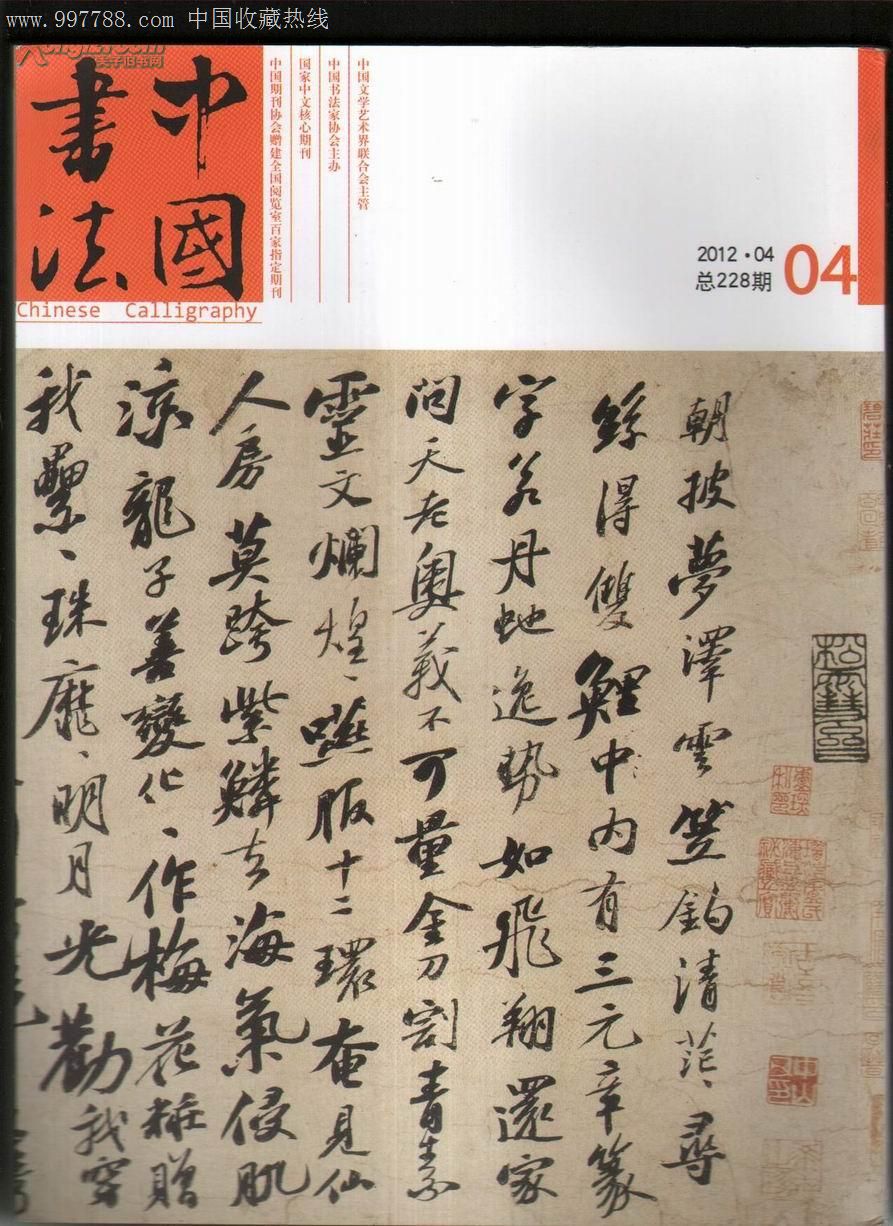 www.997788.com 中国收藏热线
中國
書法
Chinese Calligraphy
中国文学艺术界联合会主管
中国书法家协会主办
国家中文核心期刊
中国期刊协会赠建全国阅览室百家指定期刊
2012·04
总228期
04
朝披夢澤雲笠釣清茫〻尋
絲得雙鯉中内有三元章篆
字若丹虵逸勢如飛翔還家
問天老奧義不可量金刀割青素
靈文爛煌〻嚥服十二環奄見仙
人房莫跨紫鱗去海氣侵肌
涼龍子善變化〻作梅花粧贈
我纍〻珠靡〻明月光勸我穿